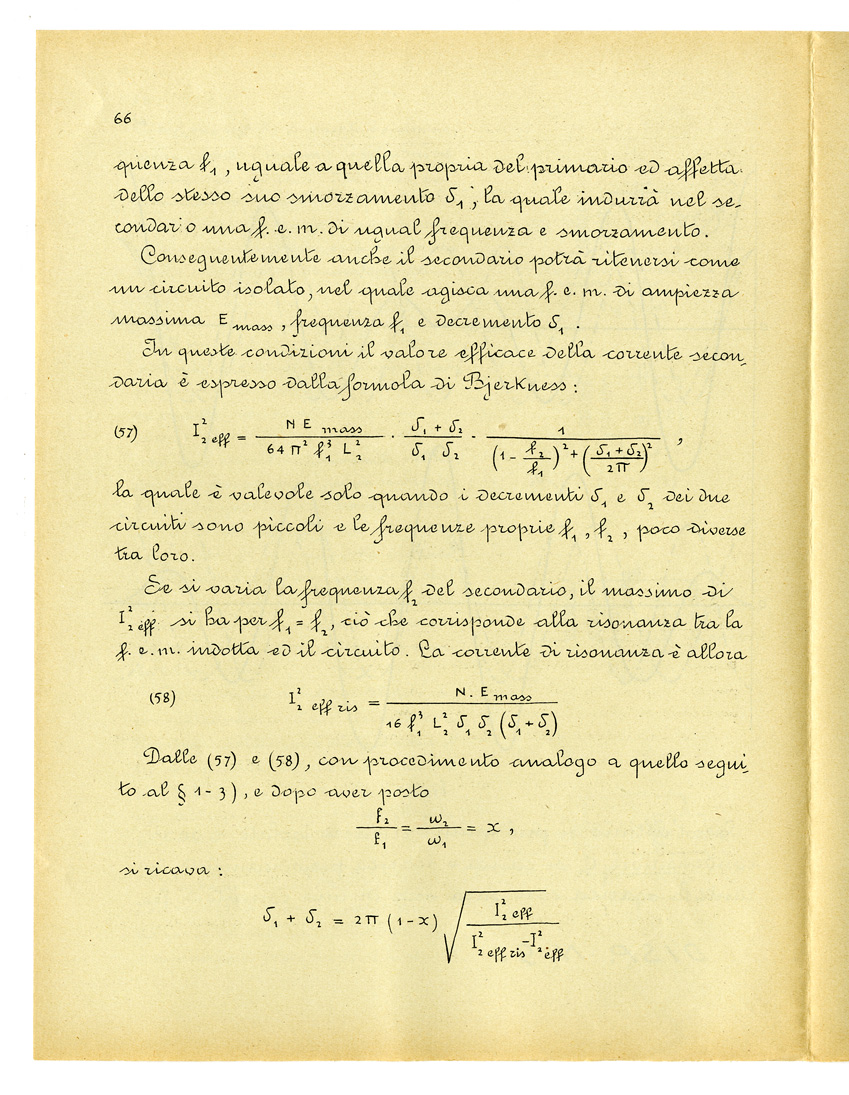 66
quenza f₁, uguale a quella propria del primario ed affetta
dello stesso suo smorzamento δ₁; la quale indurrà nel se-
condario una f. e. m. di ugual frequenza e smorzamento.
Conseguentemente anche il secondario potrà ritenersi come
un circuito isolato, nel quale agisca una f. e. m. di ampiezza
massima E mass, frequenza f₁ e decremento δ₁.
In queste condizioni il valore efficace della corrente secon-
daria è espresso dalla formola di BjerKness:
(57) I₂²eff = N E mass / (64 π² f₁³ L₂²) · (δ₁ + δ₂) / (δ₁ δ₂) · 1 / ((1 - f₂/f₁)² + ((δ₁ + δ₂)/2π)²) ,
la quale è valevole solo quando i decrementi δ₁ e δ₂ dei due
circuiti sono piccoli e le frequenze proprie f₁, f₂, poco diverse
tra loro.
Se si varia la frequenza f₂ del secondario, il massimo di
I₂²eff si ha per f₁ = f₂, ciò che corrisponde alla risonanza tra la
f. e. m. indotta ed il circuito. La corrente di risonanza è allora
(58) I₂²eff ris = N. E mass / (16 f₁³ L₂² δ₁ δ₂ (δ₁ + δ₂))
Dalle (57) e (58), con procedimento analogo a quello segui-
to al § 1-3), e dopo aver posto
f₂/f₁ = ω₂/ω₁ = x ,
si ricava:
δ₁ + δ₂ = 2π (1 - x) √(I₂²eff / (I₂²eff ris - I₂²eff))